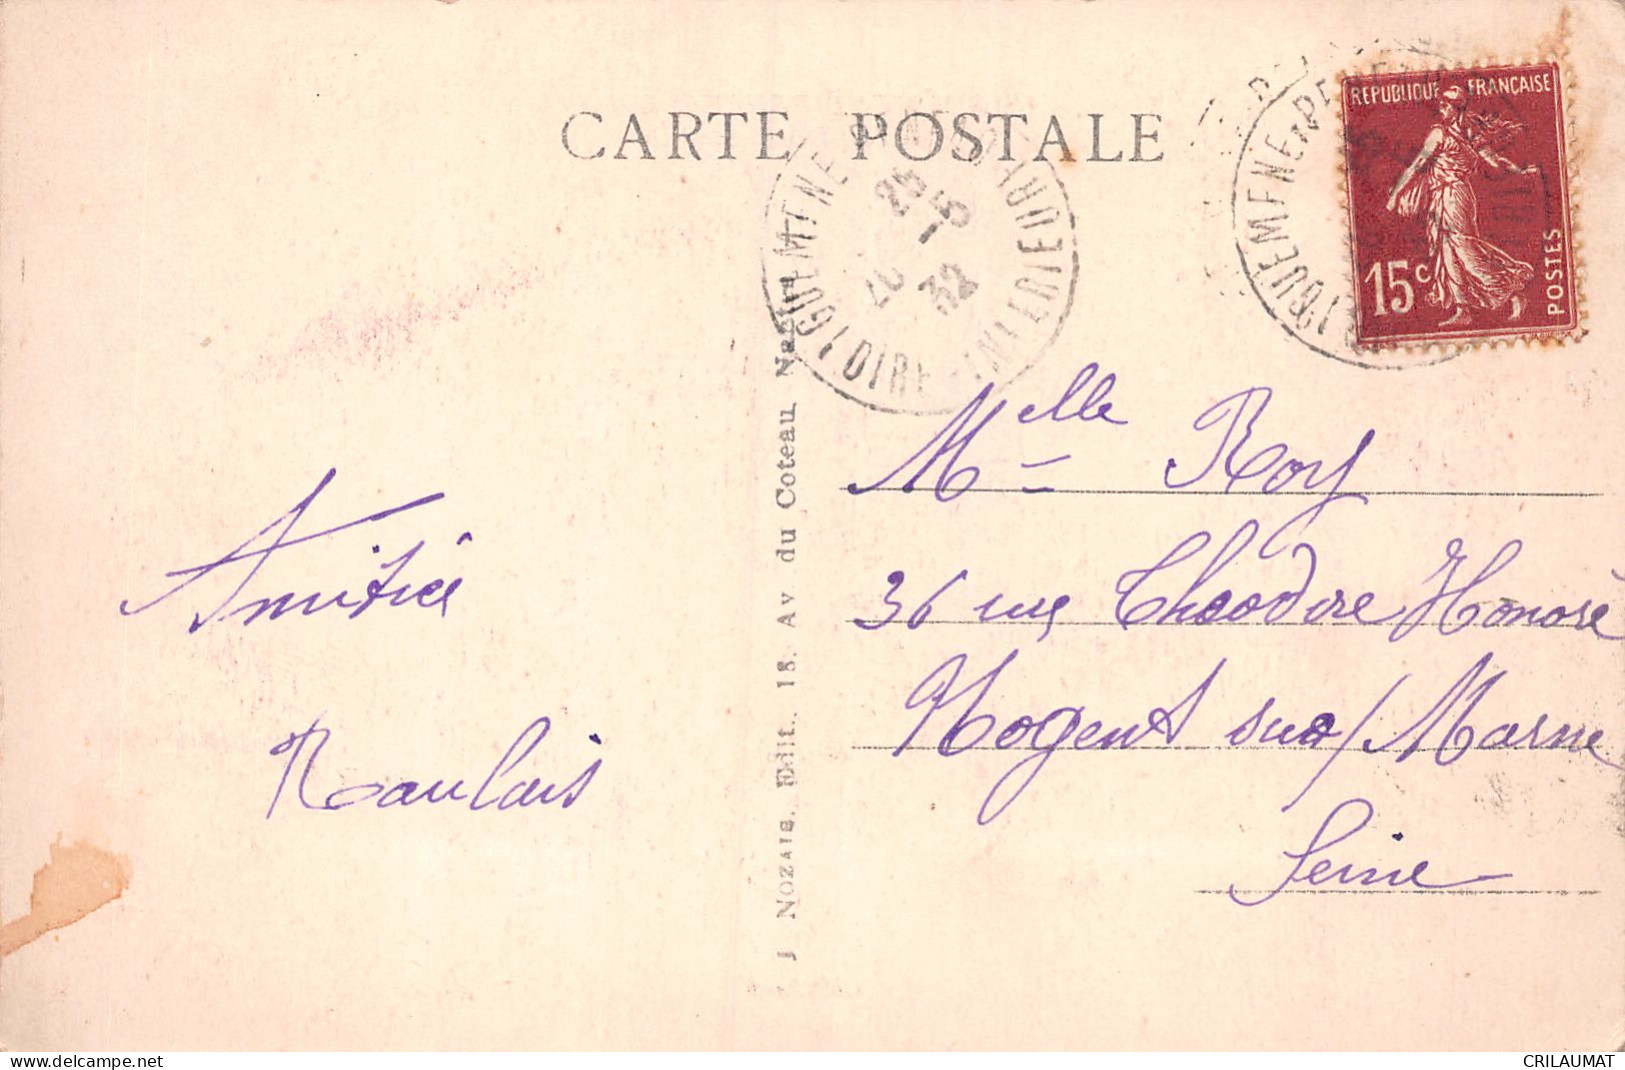 CARTE POSTALE
REPUBLIQUE FRANÇAISE
15c
POSTES
GUEMENE PENFAO
25 - 5
32
LOIRE-INFERIEURE
Mlle Roy
36 rue Théodore Honoré
Nogent sur/Marne
Seine
Amitié
Raulais
J Nozais. Edit. 18. Av du Coteau Nantes
www.delcampe.net
CRILAUMAT